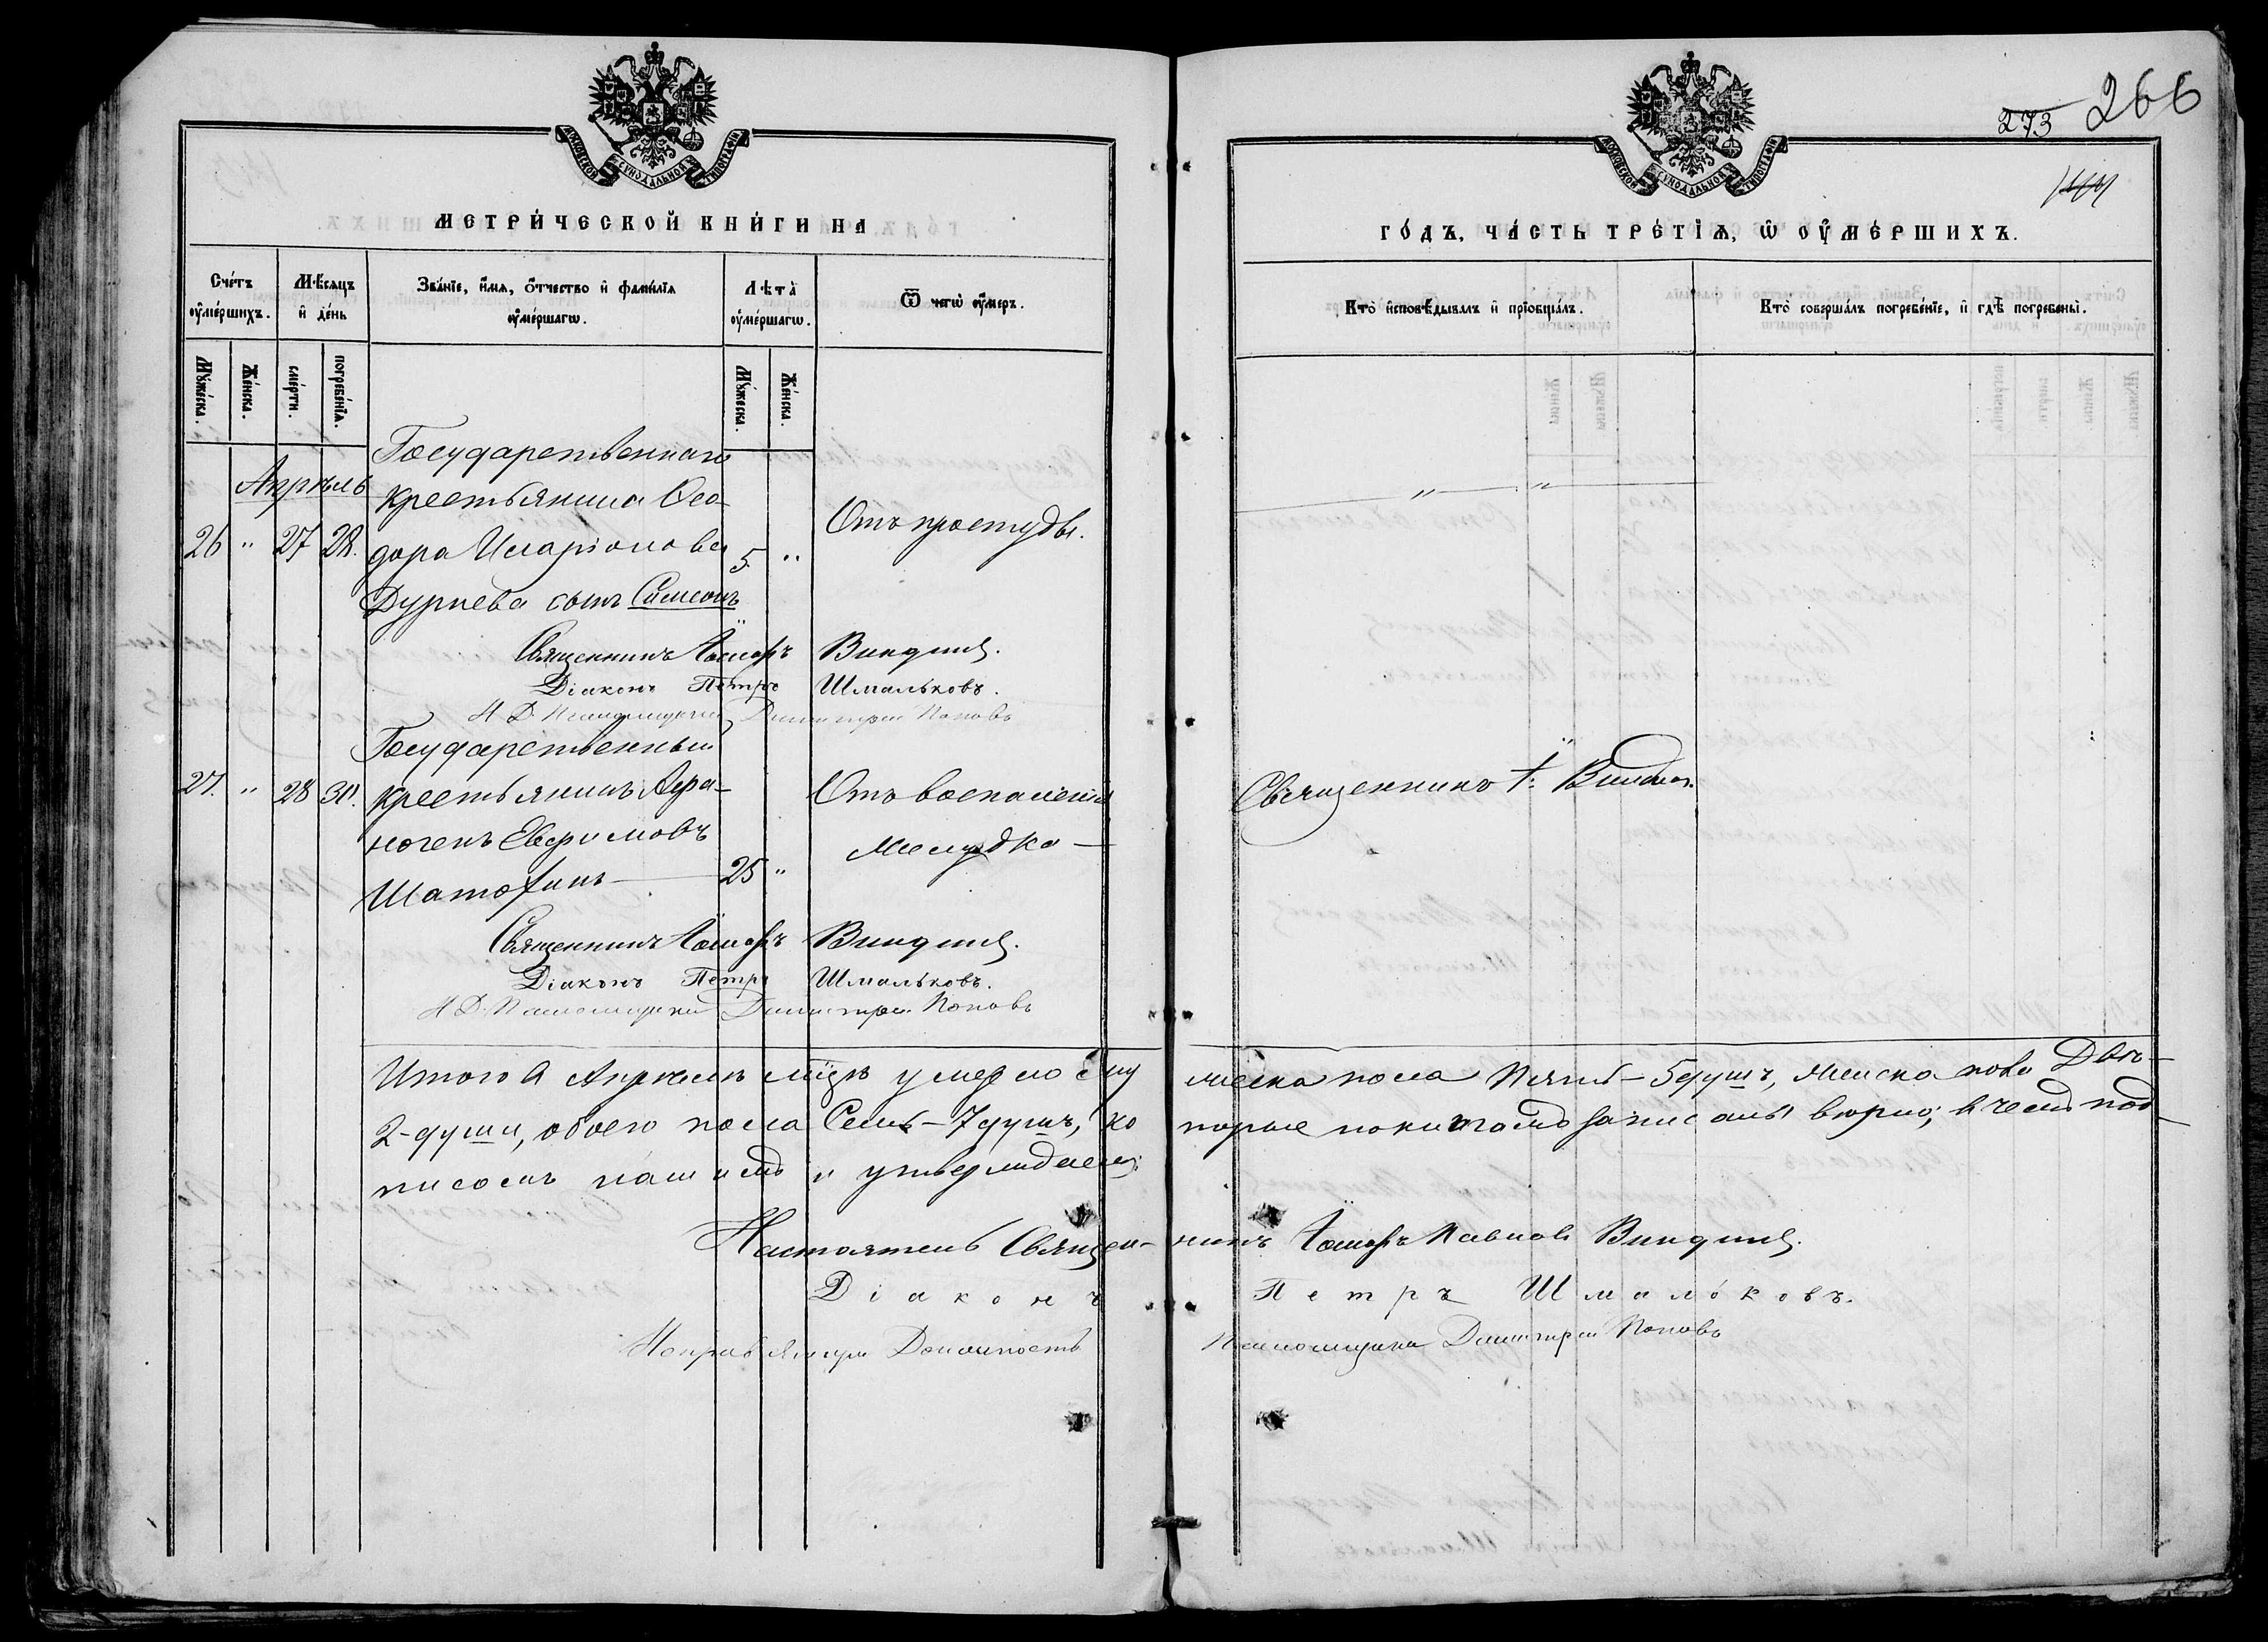 МОСКОВСКОЙ СѴНОДАЛЬНОЙ ТИПОГРАФІИ
МЕТРИ́ЧЕСКОЙ КНИ́ГИ НА
Сче́тъ ᲂу҆ме́ршихъ.
Мѣ́сяцъ и҆ де́нь
Зва́нїе, и҆́мя, ѻ҆́тчество и҆ фами́лїя ᲂу҆ме́ршагѡ.
Лѣта̀ ᲂу҆ме́ршагѡ.
Ѿ чегѡ̀ ᲂу҆́меръ.
Мꙋ́жеска.
Же́нска.
сме́рти.
погребе́нїя.
Мꙋ́жеска.
Же́нска.
Апрѣль
Государственнаго
крестьянина Ѳео-
26 " 27 28. дора Иларіонова 5. " Отъ простуды.
Дурнева сынъ Симеонъ
Священникъ Іосифъ Виндинъ.
Діаконъ Петръ Шмальковъ.
И. Д. Псаломщика Димитрій Поповъ
Государственный
27. " 28 30. крестьянинъ Аѳи- Отъ воспаленія
ногенъ Евфимовъ желудка
Шатохинъ 25 "
Священникъ Іосифъ Виндинъ.
Діаконъ Петръ Шмальковъ.
И. Д. Псаломщика Димитрій Поповъ
273 266
МОСКОВСКОЙ СѴНОДАЛЬНОЙ ТИПОГРАФІИ
ГО́ДЪ, ЧА́СТЬ ТРЕ́ТЇѦ, Ѡ ОУ҆МЕ́РШИХЪ.
Кто̀ и҆сповѣ́дывалъ и҆ прїѻбща́лъ.
Кто̀ соверша́лъ погребе́нїе, и҆ гдѣ̀ погребены̀.
" "
Священникъ І. Виндинъ.
Итого в Апрѣлѣ мцѣ умерло му жеска пола Пять - 5 душъ, женска пола Двѣ -
2 - души, обоего пола Семь - 7 душъ, ко торые показано записаны вѣрно; в чемъ под-
писомъ нашимъ и утверждаемъ
Настоятель Священ- никъ Іосифъ Павловъ Виндинъ.
Діаконъ Петръ Шмальковъ.
Исправляющій Должность Псаломщика Димитрій Поповъ